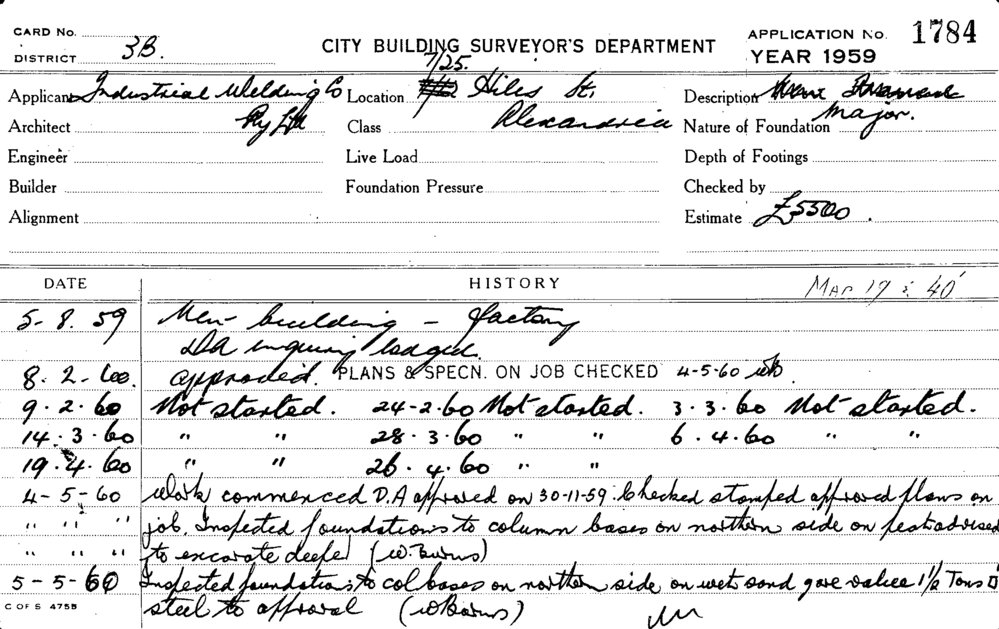 CARD No.
DISTRICT 3B.
CITY BUILDING SURVEYOR'S DEPARTMENT
APPLICATION No. 1784
YEAR 1959
Applicant Industrial Welding Co
Pty Ltd
Location 7/25. Hiles St.
Alexandria
Description
Major.
Architect
Class
Nature of Foundation
Engineer
Live Load
Depth of Footings
Builder
Foundation Pressure
Checked by
Alignment
Estimate £5500.
DATE
HISTORY
MAP 17 & 40
5-8.59 New building - factory
DA inquiry lodged.
8.2-60. approved. PLANS & SPECN. ON JOB CHECKED 4-5-60
9.2.60 Not started. 24-2.60 Not started. 3.3.60 Not started.
14.3.60 " " 28.3.60 " " 6.4.60 " "
19.4.60 " " 26.4.60 " "
4-5-60 Work commenced D.A approved on 30-11-59. Checked stamped approved plans on
" " " job. Inspected foundations to column bases on northern side on peat advised
" " " to excavate deeper (W Burns)
5-5-60 Inspected foundations to col bases on northern side on wet sand gave value 1½ Tons □'
steel to approval (W Burns)
C OF S 475B